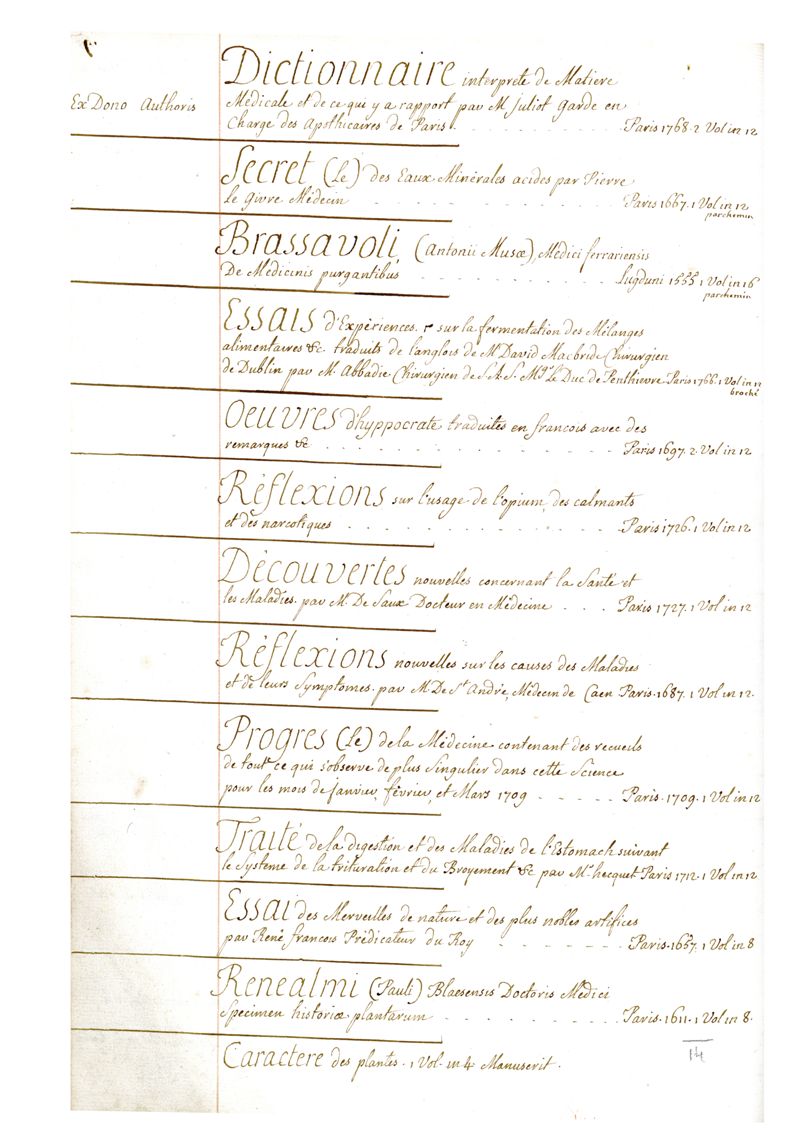 Dictionnaire interprete de Matiere
Ex Dono Authoris
Médicale et de ce qui y a rapport par M Juliot Garde en
Charge des Apothicaires de Paris. Paris 1768. 2 Vol in 12
Secret (Le) des Eaux Minérales acides par Pierre
Le Givre Médecin Paris 1667. 1 Vol in 12
parchemin
Brassavoli, (Antonii Musæ), Medici ferrariensis
De Medicinis purgantibus Lugduni 1555 1 Vol in 16
parchemin
Essais d'Expériences. 1º sur la fermentation des Mélanges
alimentaires &c. traduits de l'anglois de Mr David Macbride Chirurgien
de Dublin par M. Abbadie Chirurgien de S.A.S. Mgr Le Duc de Penthievre Paris 1766. 1 Vol in 12
broché
Oeuvres d'hyppocrate traduites en francois avec des
remarques &c Paris 1697. 2. Vol in 12
Réflexions sur l'usage de l'opium, des calmants
et des narcotiques Paris 1726. 1 Vol in 12
Découvertes nouvelles concernant la Santé et
les Maladies. par M. De Saux Docteur en Médecine Paris 1727. 1 Vol in 12
Réflexions nouvelles sur les causes des Maladies
et de leurs Symptomes. par M. De St André, Médecin de Caen Paris. 1687. 1 Vol in 12.
Progres (Le) de la Médecine contenant des recueils
de tout ce qui s'observe de plus Singulier dans cette Science
pour les mois de janvier, fevrier, et Mars 1709 Paris. 1709. 1 Vol in 12
Traité de la digestion et des Maladies de l'Estomach suivant
le Systeme de la trituration et du Broyement &c par Mr hecquet Paris 1712. 1 Vol in 12
Essai des Merveilles de nature et des plus nobles artifices
par René francois Prédicateur du Roy Paris. 1657. 1 Vol in 8
Renealmi (Pauli) Blaesensis Doctoris Medici
Specimen historiæ plantarum Paris. 1611. 1 Vol in 8.
14
Caractere des plantes. 1 Vol. in 4 Manuscrit.